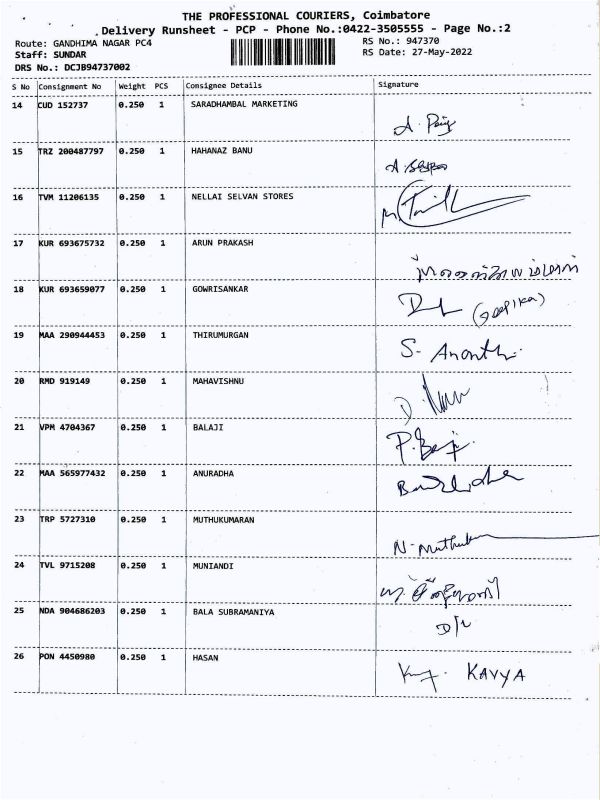 THE PROFESSIONAL COURIERS, Coimbatore
Delivery Runsheet - PCP - Phone No.:0422-3505555 - Page No.:2
Route: GANDHIMA NAGAR PC4
RS No.: 947370
Staff: SUNDAR
RS Date: 27-May-2022
DRS No.: DCJB94737002
S No Consignment No Weight PCS Consignee Details Signature
14 CUD 152737 0.250 1 SARADHAMBAL MARKETING
15 TRZ 200487797 0.250 1 HAHANAZ BANU
16 TVM 11206135 0.250 1 NELLAI SELVAN STORES
17 KUR 693675732 0.250 1 ARUN PRAKASH
18 KUR 693659077 0.250 1 GOWRISANKAR
(Deepika)
19 MAA 290944453 0.250 1 THIRUMURGAN
S. Ananthi
20 RMD 919149 0.250 1 MAHAVISHNU
21 VPM 4704367 0.250 1 BALAJI
22 MAA 565977432 0.250 1 ANURADHA
23 TRP 5727310 0.250 1 MUTHUKUMARAN
N. Muthuku
24 TVL 9715208 0.250 1 MUNIANDI
25 NDA 904686203 0.250 1 BALA SUBRAMANIYA
D/L
26 PON 4450980 0.250 1 HASAN
KAVYA